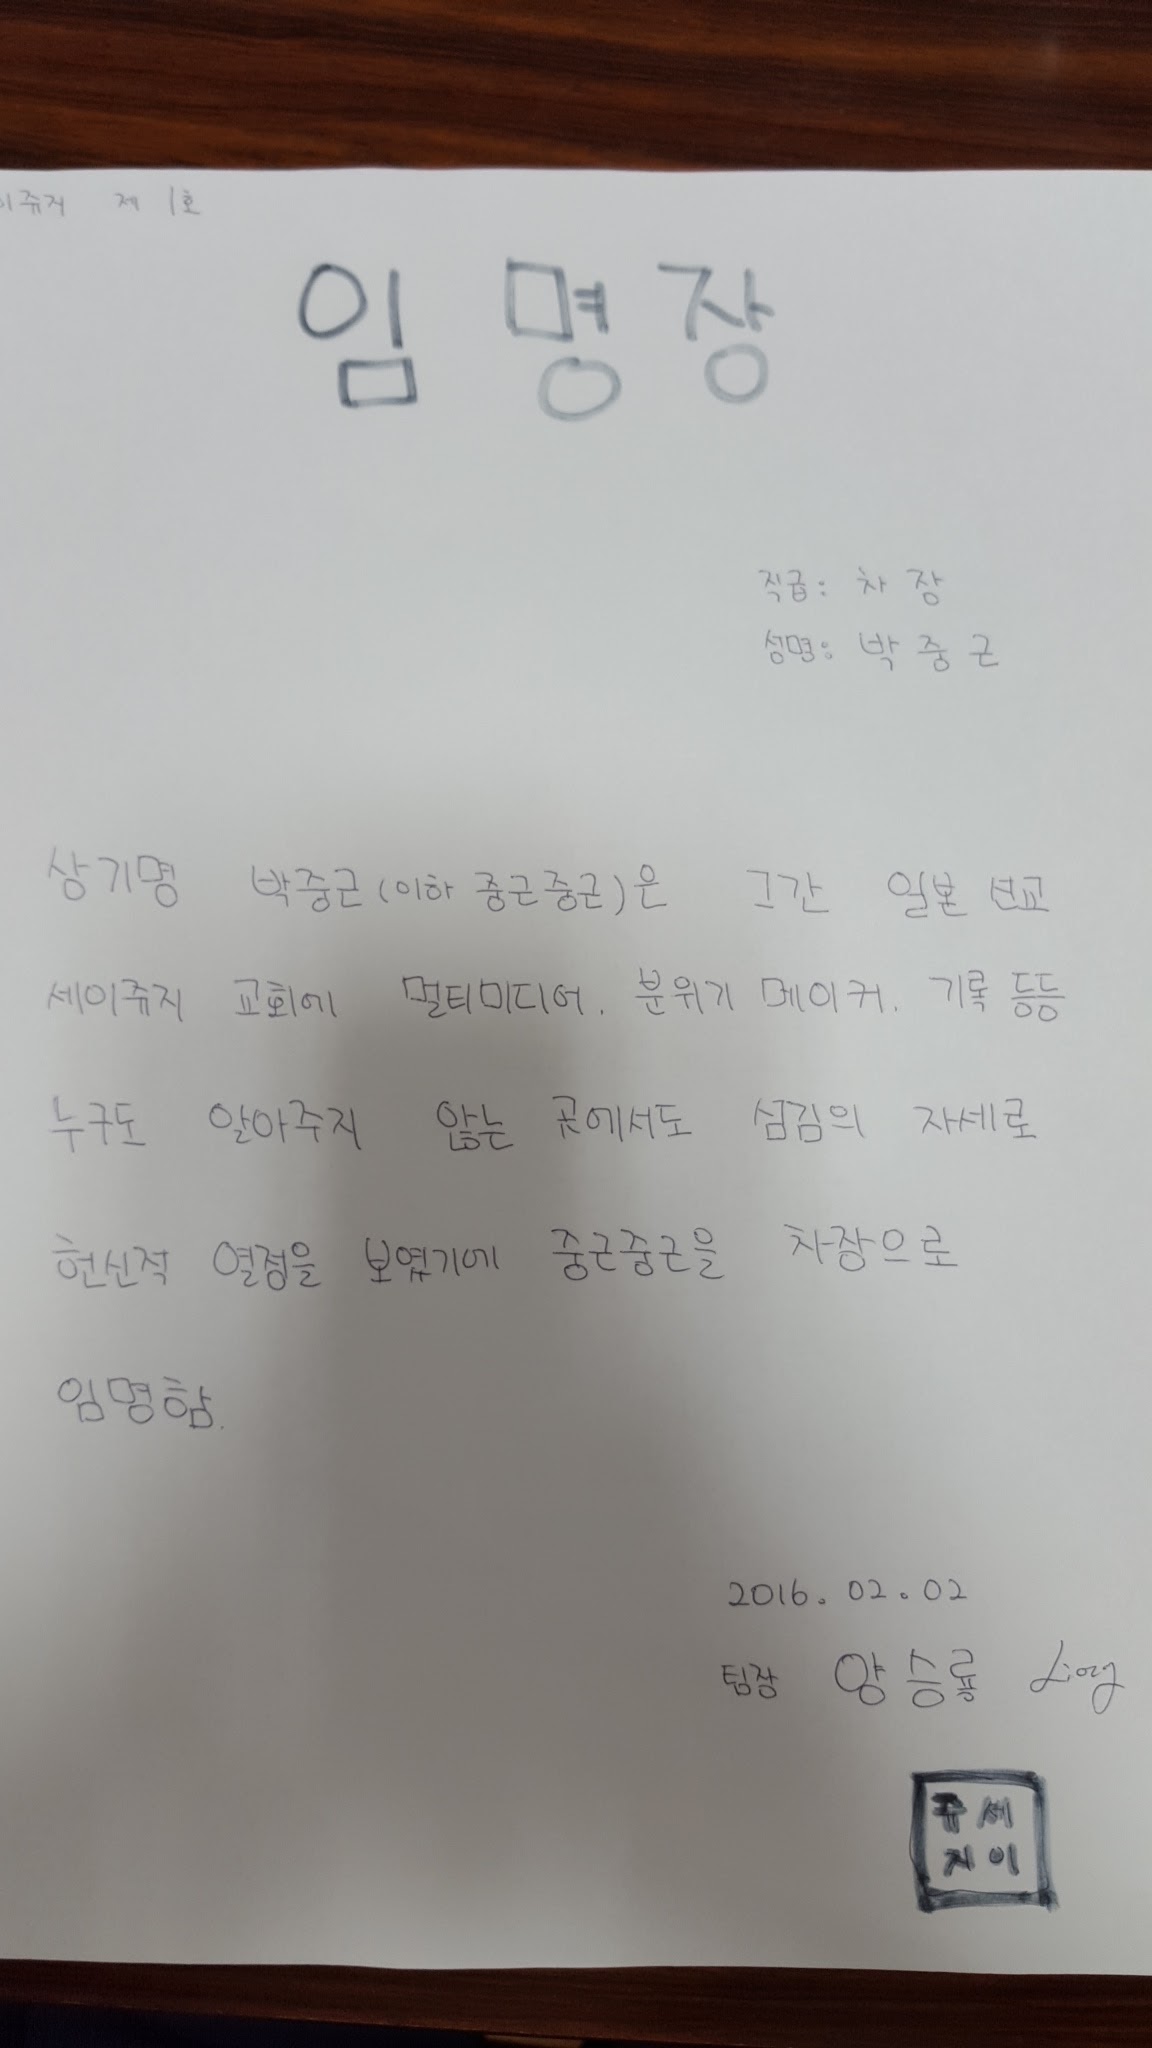 이쥬지 제 1호
임 명 장
직급: 차 장
성명: 박 중 근
상기명 박중근(이하 중근중근)은 그간 일본 선교
세이쥬지 교회에 멀티미디어. 분위기 메이커. 기록 등등
누구도 알아주지 않는 곳에서도 섬김의 자세로
헌신적 열정을 보였기에 중근중근을 차장으로
임명함.
2016. 02. 02
팀장 양 승 룡
쥬 세
지 이